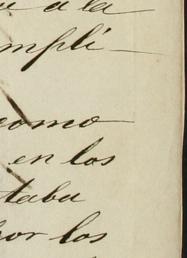 a la
mpli-
como
en los
taba
por los